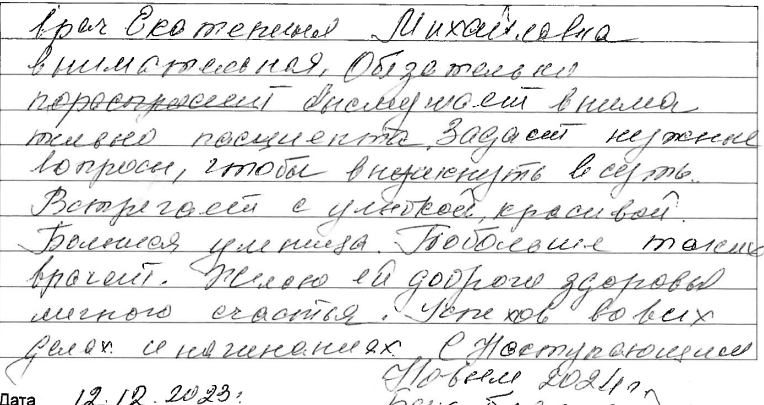 врач Екатерина Михайловна
внимательная. Обязательно
выслушает внима
тельно пациента. Задаёт нужные
вопросы, чтобы вникнуть в суть.
Встречает с улыбкой, красивой.
Большая умница. Побольше таких
врачей. Желаю ей доброго здоровья
личного счастья. Успехов во всех
делах и начинаниях. С Наступающим
Новым 2024 г.
Дата 12.12.2023г.